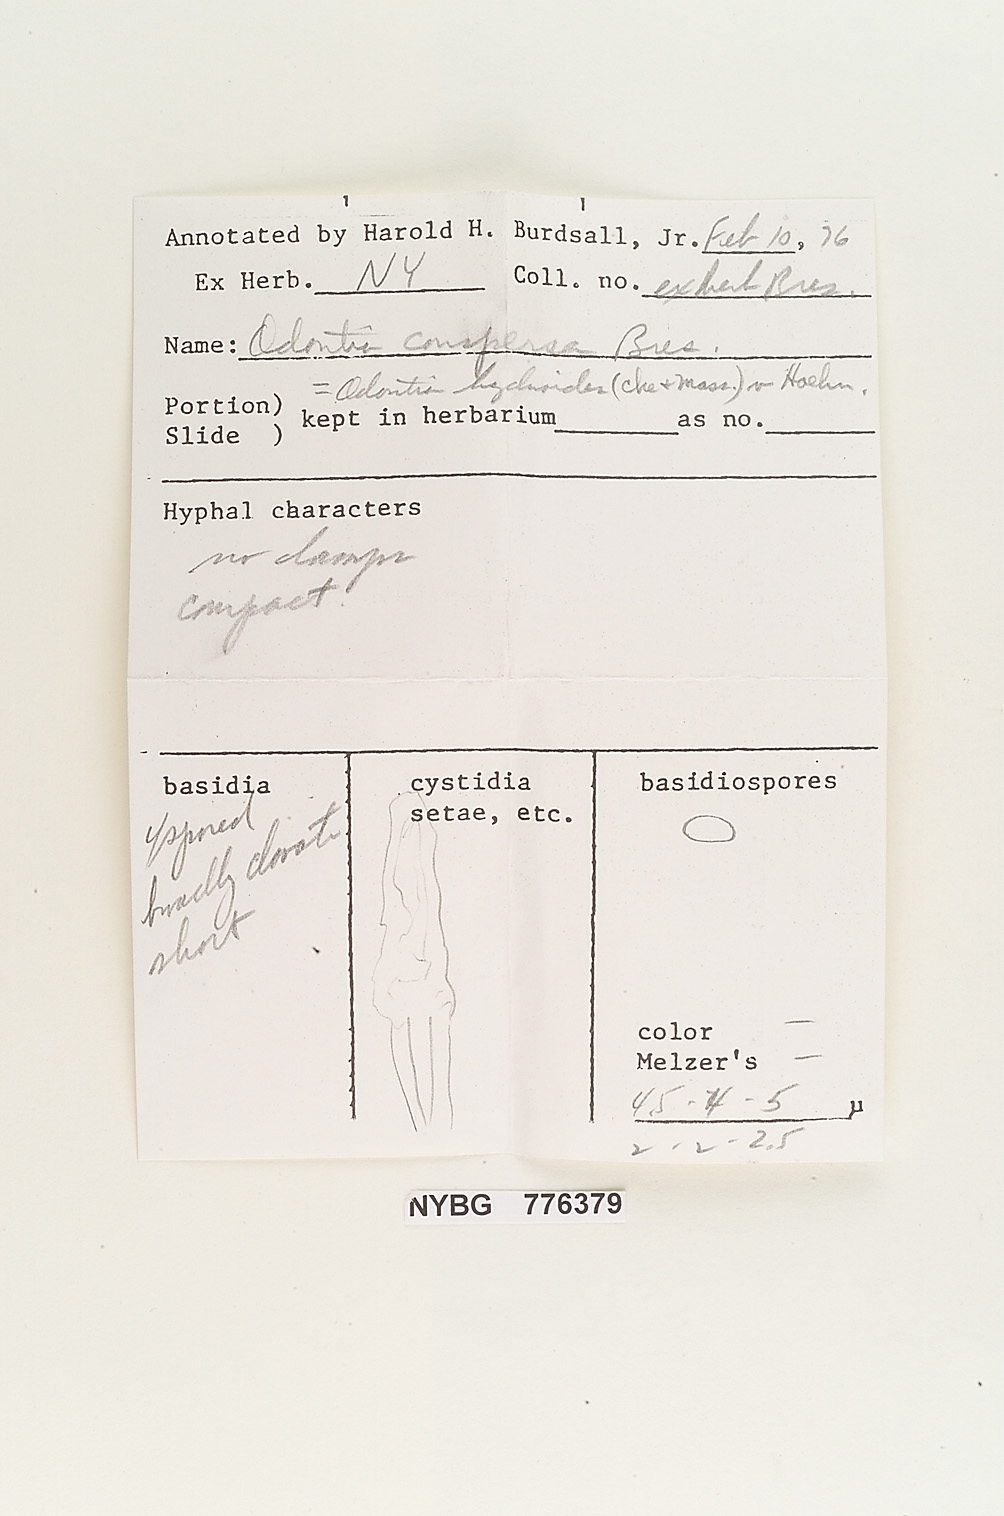 Annotated by Harold H. Burdsall, Jr. Feb 10, 76
Ex Herb. NY Coll. no. ex herb Bres.
Name: Odontia conspersa Bres.
= Odontia hydnoides (Cke + Mass.) v Hoehn.
Portion)
Slide ) kept in herbarium as no.
Hyphal characters
no clamps
compact
basidia
4 spored
broadly clavate
short
cystidia
setae, etc.
basidiospores
color —
Melzer's —
45 - 4 - 5 µ
2 - 2 - 2.5
NYBG 776379